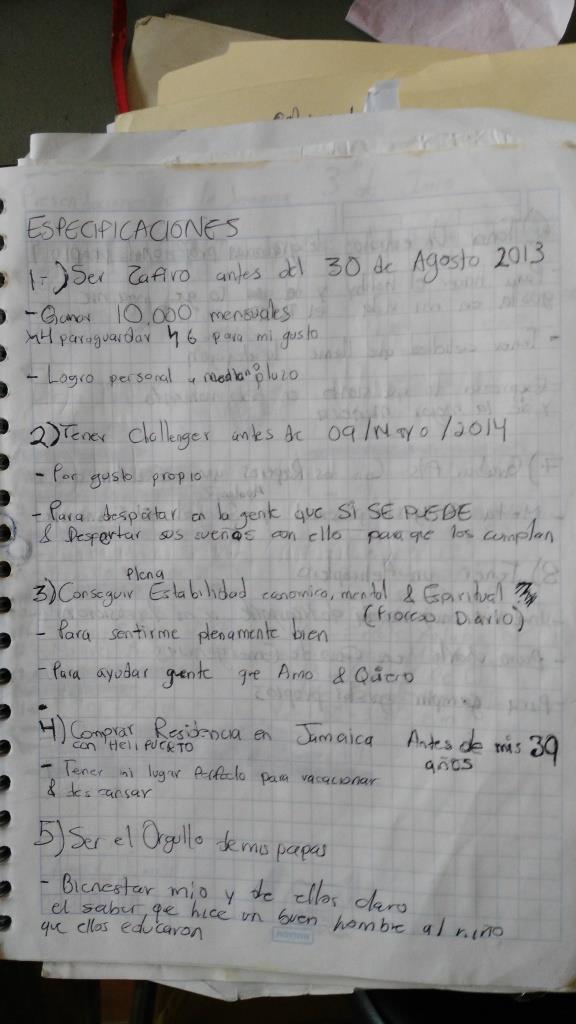 ESPECIFICACIONES
1.-) Ser Zafiro antes del 30 de Agosto 2013
- Ganar 10,000 mensuales
4 para guardar y 6 para mi gusto
- Logro personal a mediano plazo
2) Tener Challenger antes de 09/Mayo/2014
- Por gusto propio
- Para despertar en la gente que SI SE PUEDE
& Despertar sus sueños con ello para que los cumplan
Plena
3) Conseguir Estabilidad economica, mental & Espiritual
(Proceso Diario)
- Para sentirme plenamente bien
- Para ayudar gente que Amo & Quiero
4) Comprar Residencia en Jamaica Antes de mis 39
con HELIPUERTO años
- Tener mi lugar Perfecto para vacacionar
& descansar
5) Ser el Orgullo de mis papas
- Bienestar mio y de ellos claro
el saber que hice un buen hombre al niño
que ellos educaron